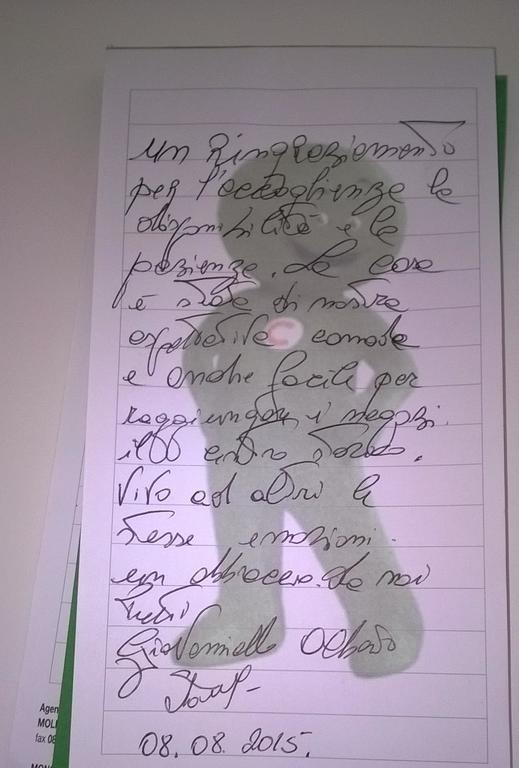 un Ringraziamento
per l'accoglienza la
disponibilità e la
pazienza. La casa
è stata di nostra
aspettativa comoda
e anche facile per
raggiungere i negozi.
il centro storico.
Vivo ad altri le
stesse emozioni.
un abbraccio. da noi
tutti
Giovanniello
08.08.2015.
Agen
MOL
fax 08